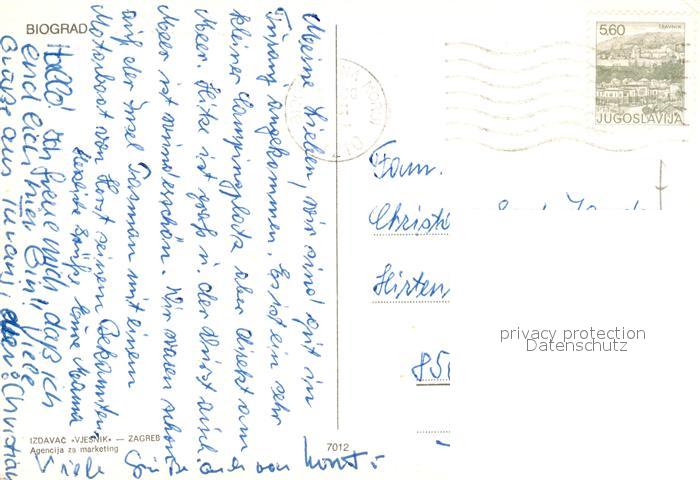 BIOGRAD
Meine Lieben, wir sind gut in
Turanj angekommen. Es ist ein sehr
kleiner Campingplatz aber direkt am
Meer. Hitze ist groß u. der Durst auch
Meer ist wunderschön. Wir waren schon
auf der Insel Pasman mit einem
Motorboot von Horst seinem Bekannten.
Herzliche Grüße Eure Mama
Hallo! Ich freue mich daß ich
endlich hier bin! Viele
Grüße aus Turanj, euer Christian
Viele Grüße auch von Horst
IZDAVAČ «VJESNIK» — ZAGREB
Agencija za marketing
7012
TRAVNIK
5.60
JUGOSLAVIJA
Fam.
Christi
Hirten
85
privacy protection
Datenschutz